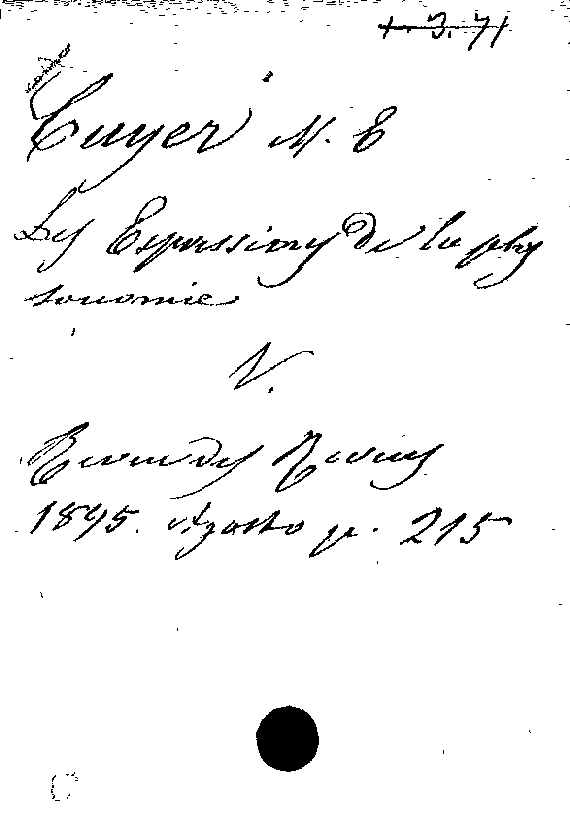 1. 3. 71
Cuyer M. E
Les Expressions de la phy
sonomie
V.
Revue des Revues
1895. Agosto p. 215
C